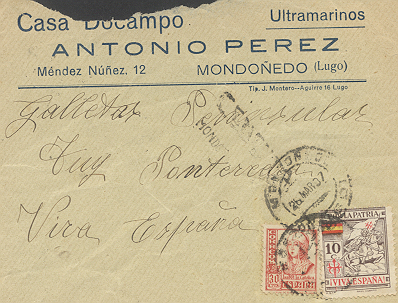 Casa Docampo
Ultramarinos
ANTONIO PEREZ
Méndez Núñez, 12
MONDOÑEDO (Lugo)
Tip. J. Montero--Aguirre 16 Lugo
Galletas
Tuy Pontevedra
Viva España
26 MAR 37
30
LA PATRIA
10
¡VIVA ESPAÑA!